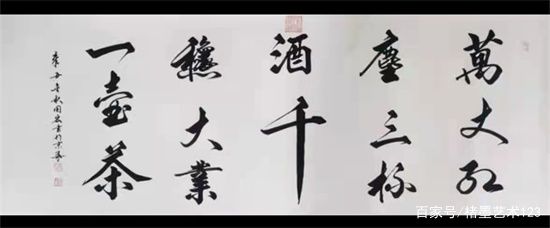 萬丈紅
塵三杯
酒千
穐大業
一壺茶
百家号/楮墨艺术123